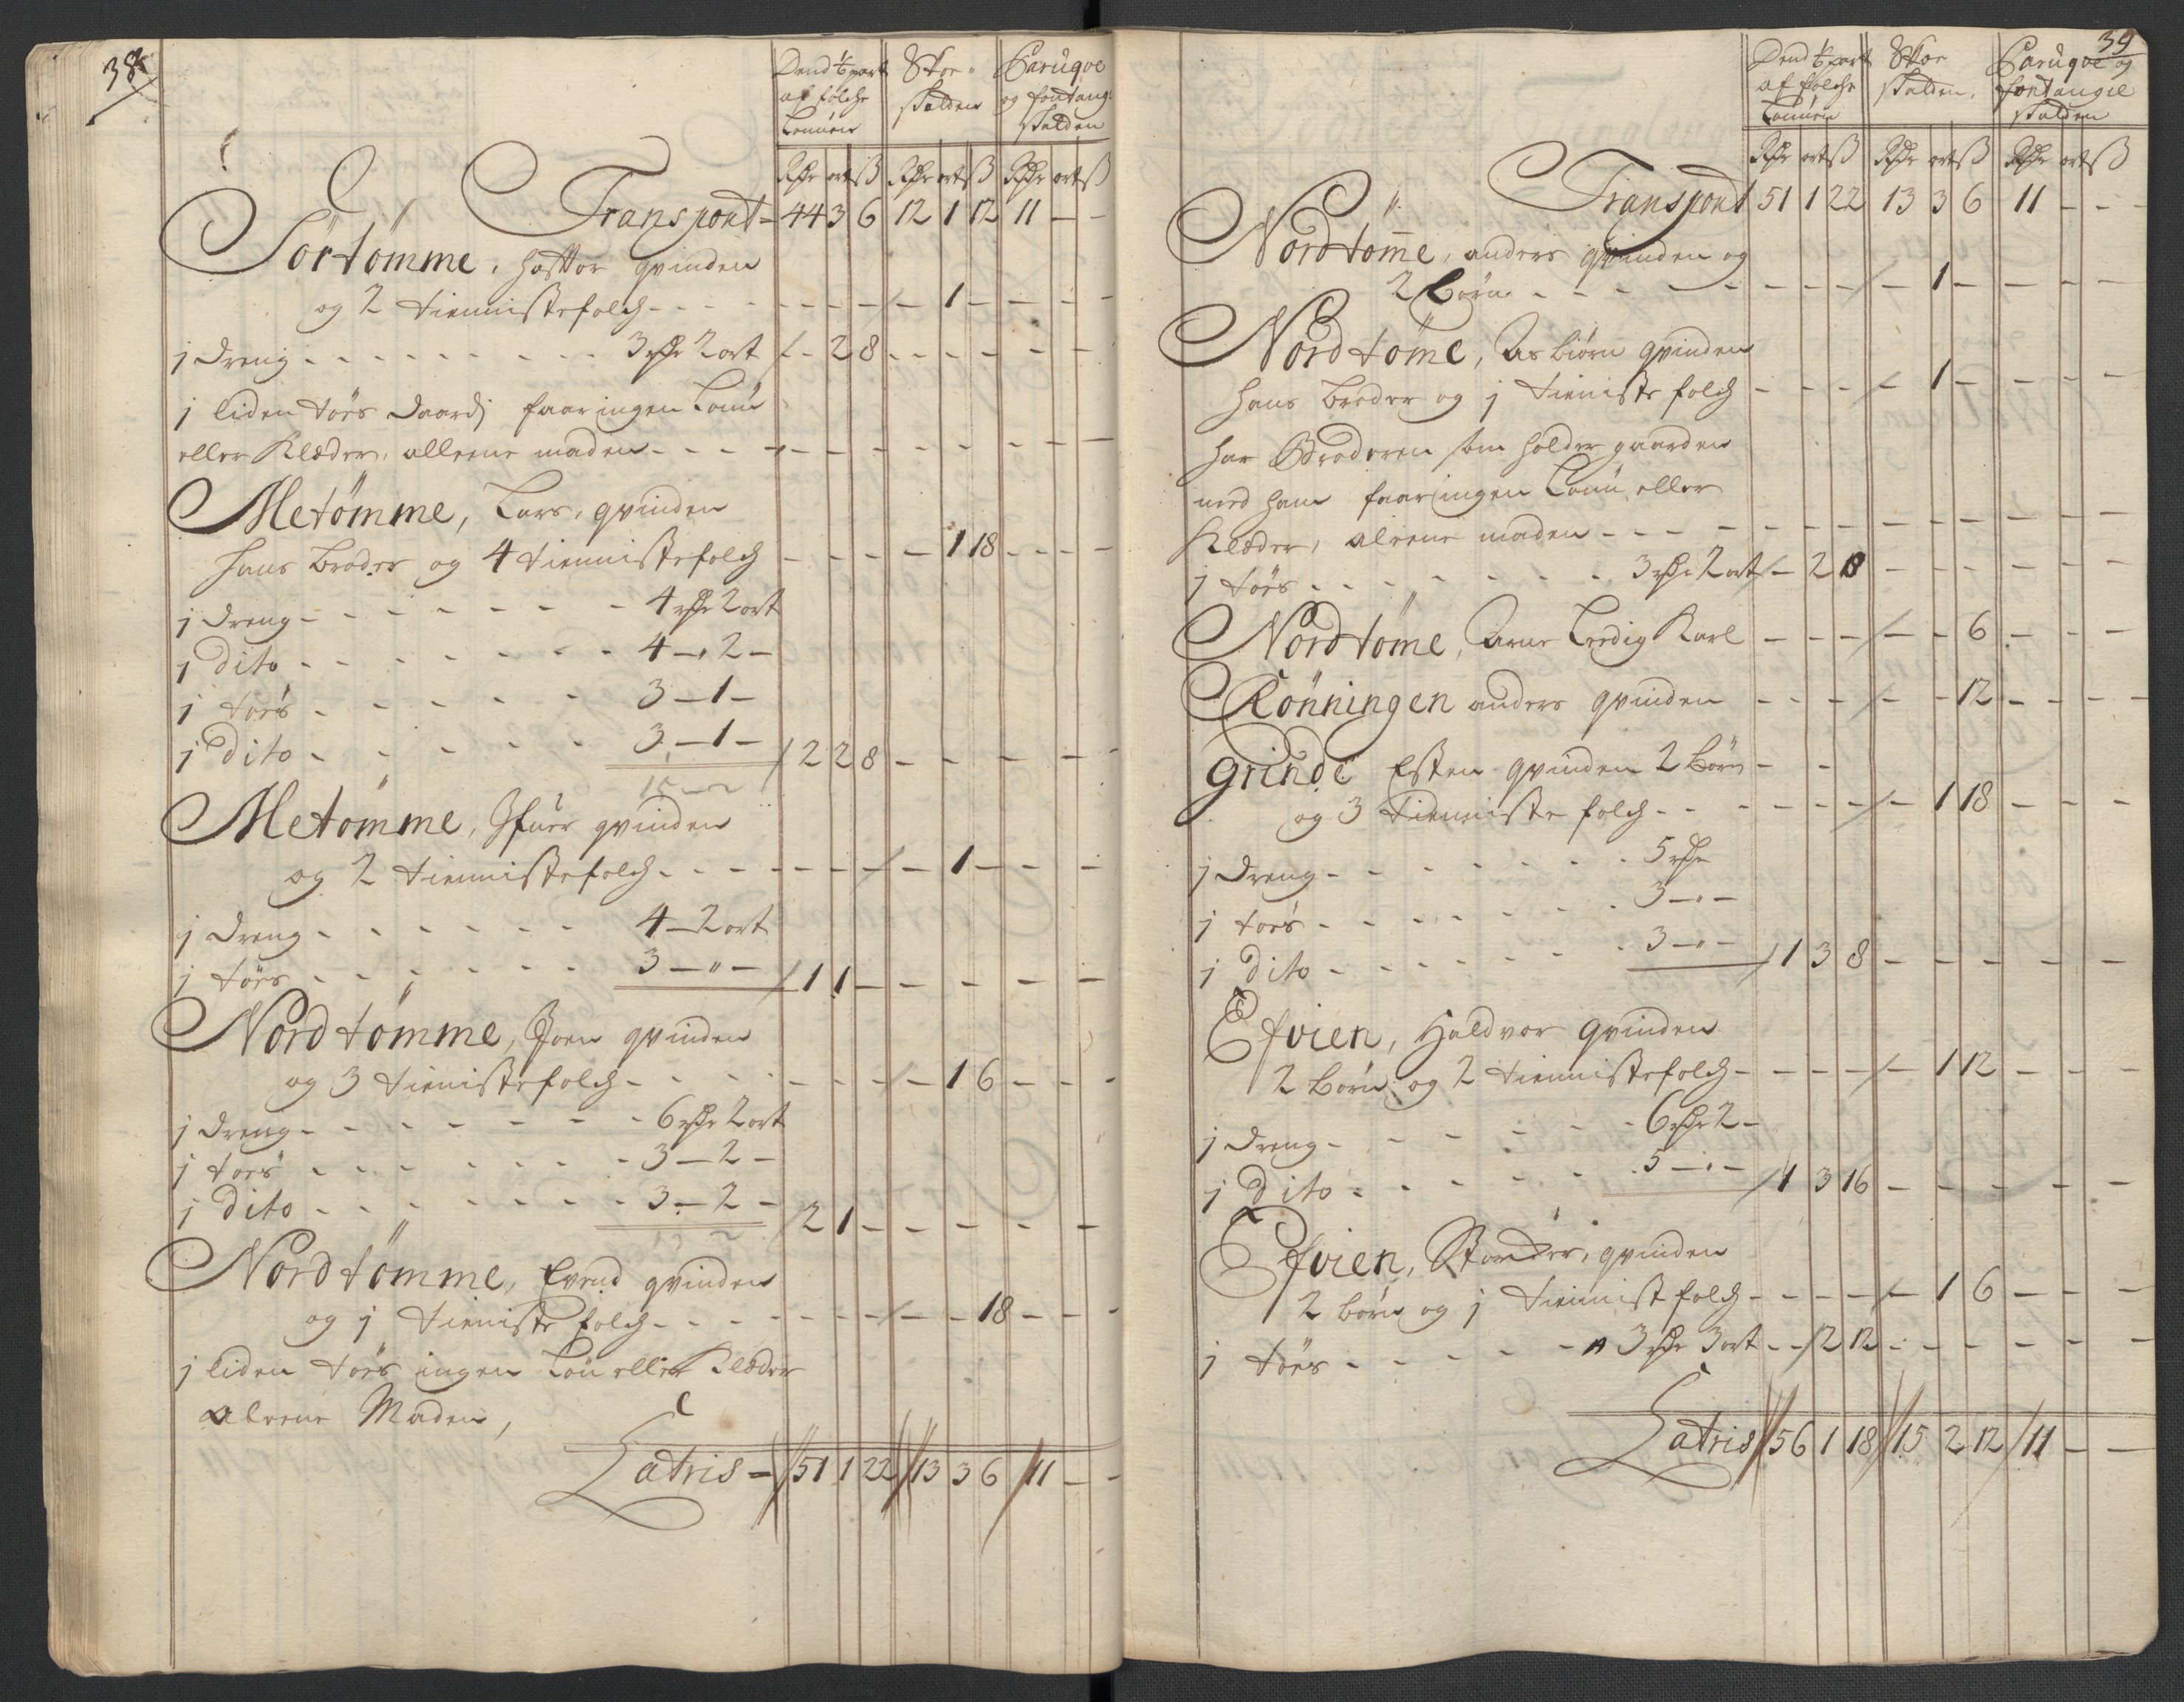 38
Dend 1/6 part Skoe= Paruqve
af folche skatden og fontang:
Lønnen skatden
Rdr ort ß Rdr ort ß Rdr ort ß
Transport= 44 3 6 12 1 12 11 - -
Sørtømme, qvinden
og 2 tiennistefolch - - - - 1 - - - -
j dreng - - - 3 Rdr 2 ort - 2 8 - - - - -
j liden tøes faar ingen Lønn
eller Klæder, alleene maden - - - -
Metømme, Lars, qvinden
hans broder og 4 tiennistefolch - - - - 1 18 - - -
j dreng - - - 4 Rdr 2 ort
j dito - - - 4 - 2 -
j tøes - - - 3 - 1 -
j dito - - - 3 - 1 - 2 2 8 - - - - -
15 - 2
Metømme, Ifuer qvinden
og 2 tiennistefolch - - - - 1 - - - -
j dreng - - - 4 - 2 ort
j tøes - - - 3 - " - 1 1 - - - - - -
Nordtømme, Joen qvinden
og 3 tienistefolch - - - - 1 6 - - -
j dreng - - - 6 Rdr 2 ort
j tøes - - - 3 - 2 -
j dito - - - 3 - 2 - 2 1 - - - - -
13 2
Nordtømme, Evend qvinden
og j tieniste folch - - - - - 18 - - -
j liden tøes ingen Løn eller Klæder
aleene Maden,
Latris = 51 1 22 13 3 6 11 - -
39
Dend 1/6 part Skoe Paruqve og
af folche skatden, fontangie
Lønnen skatden
Rdr ort ß Rdr ort ß Rdr ort ß
Transport 51 1 22 13 3 6 11 - -
Nordtom̄e, anders qvinden og
2 børn - - - - 1 - - - -
Nordtöme, Asbiørn qvinden
hans broder og j tieniste folch - - - - 1 - - - -
har Broderen som holder gaarden
med ham faar ingen Lønn eller
Klæder, aleene maden - - - -
j tøes - - - 3 Rdr 2 ort - 2 8 - - - - -
Nordtöme, Arne Leedig Karl - - - - - 6 - - -
Rönningen anders qvinden - - - - - 12 - - -
Grinde Esten qvinden 2 børn - -
og 3 Tienniste folch - - - - 1 18 - - -
j dreng - - - 5 Rdr
j tøes - - - 3 - " -
j dito - - - 3 - " - 1 3 8 - - - - -
Efvien, Haldvor qvinden
2 børn og 2 tiennistefolch - - - - 1 12 - - -
j dreng - - - 6 Rdr 2 -
j dito - - - 5 - " - 1 3 16 - - - - -
Efvien, qvinden
2 børn og j tiennist folch - - - - 1 6 - - -
j tøes - - - 3 Rdr 3 ort - - 2 12 - - - - -
Latris 56 1 18 15 2 12 11 - -